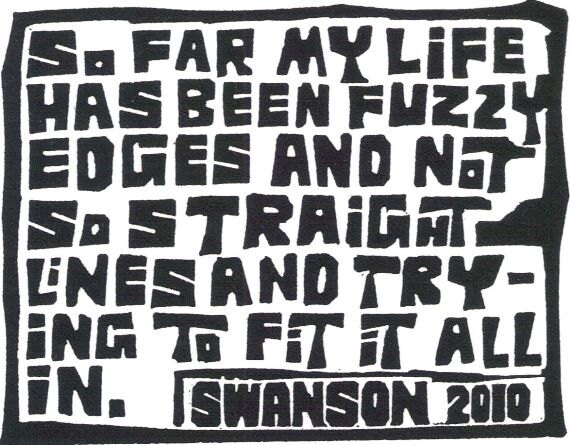 So FAR MY LiFE
HAS BEEN FUZZY
EDGES AND NoT
So STRAiGHT
LiNES AND TRY-
iNG To FiT iT ALL
iN.
SWANSON 2010